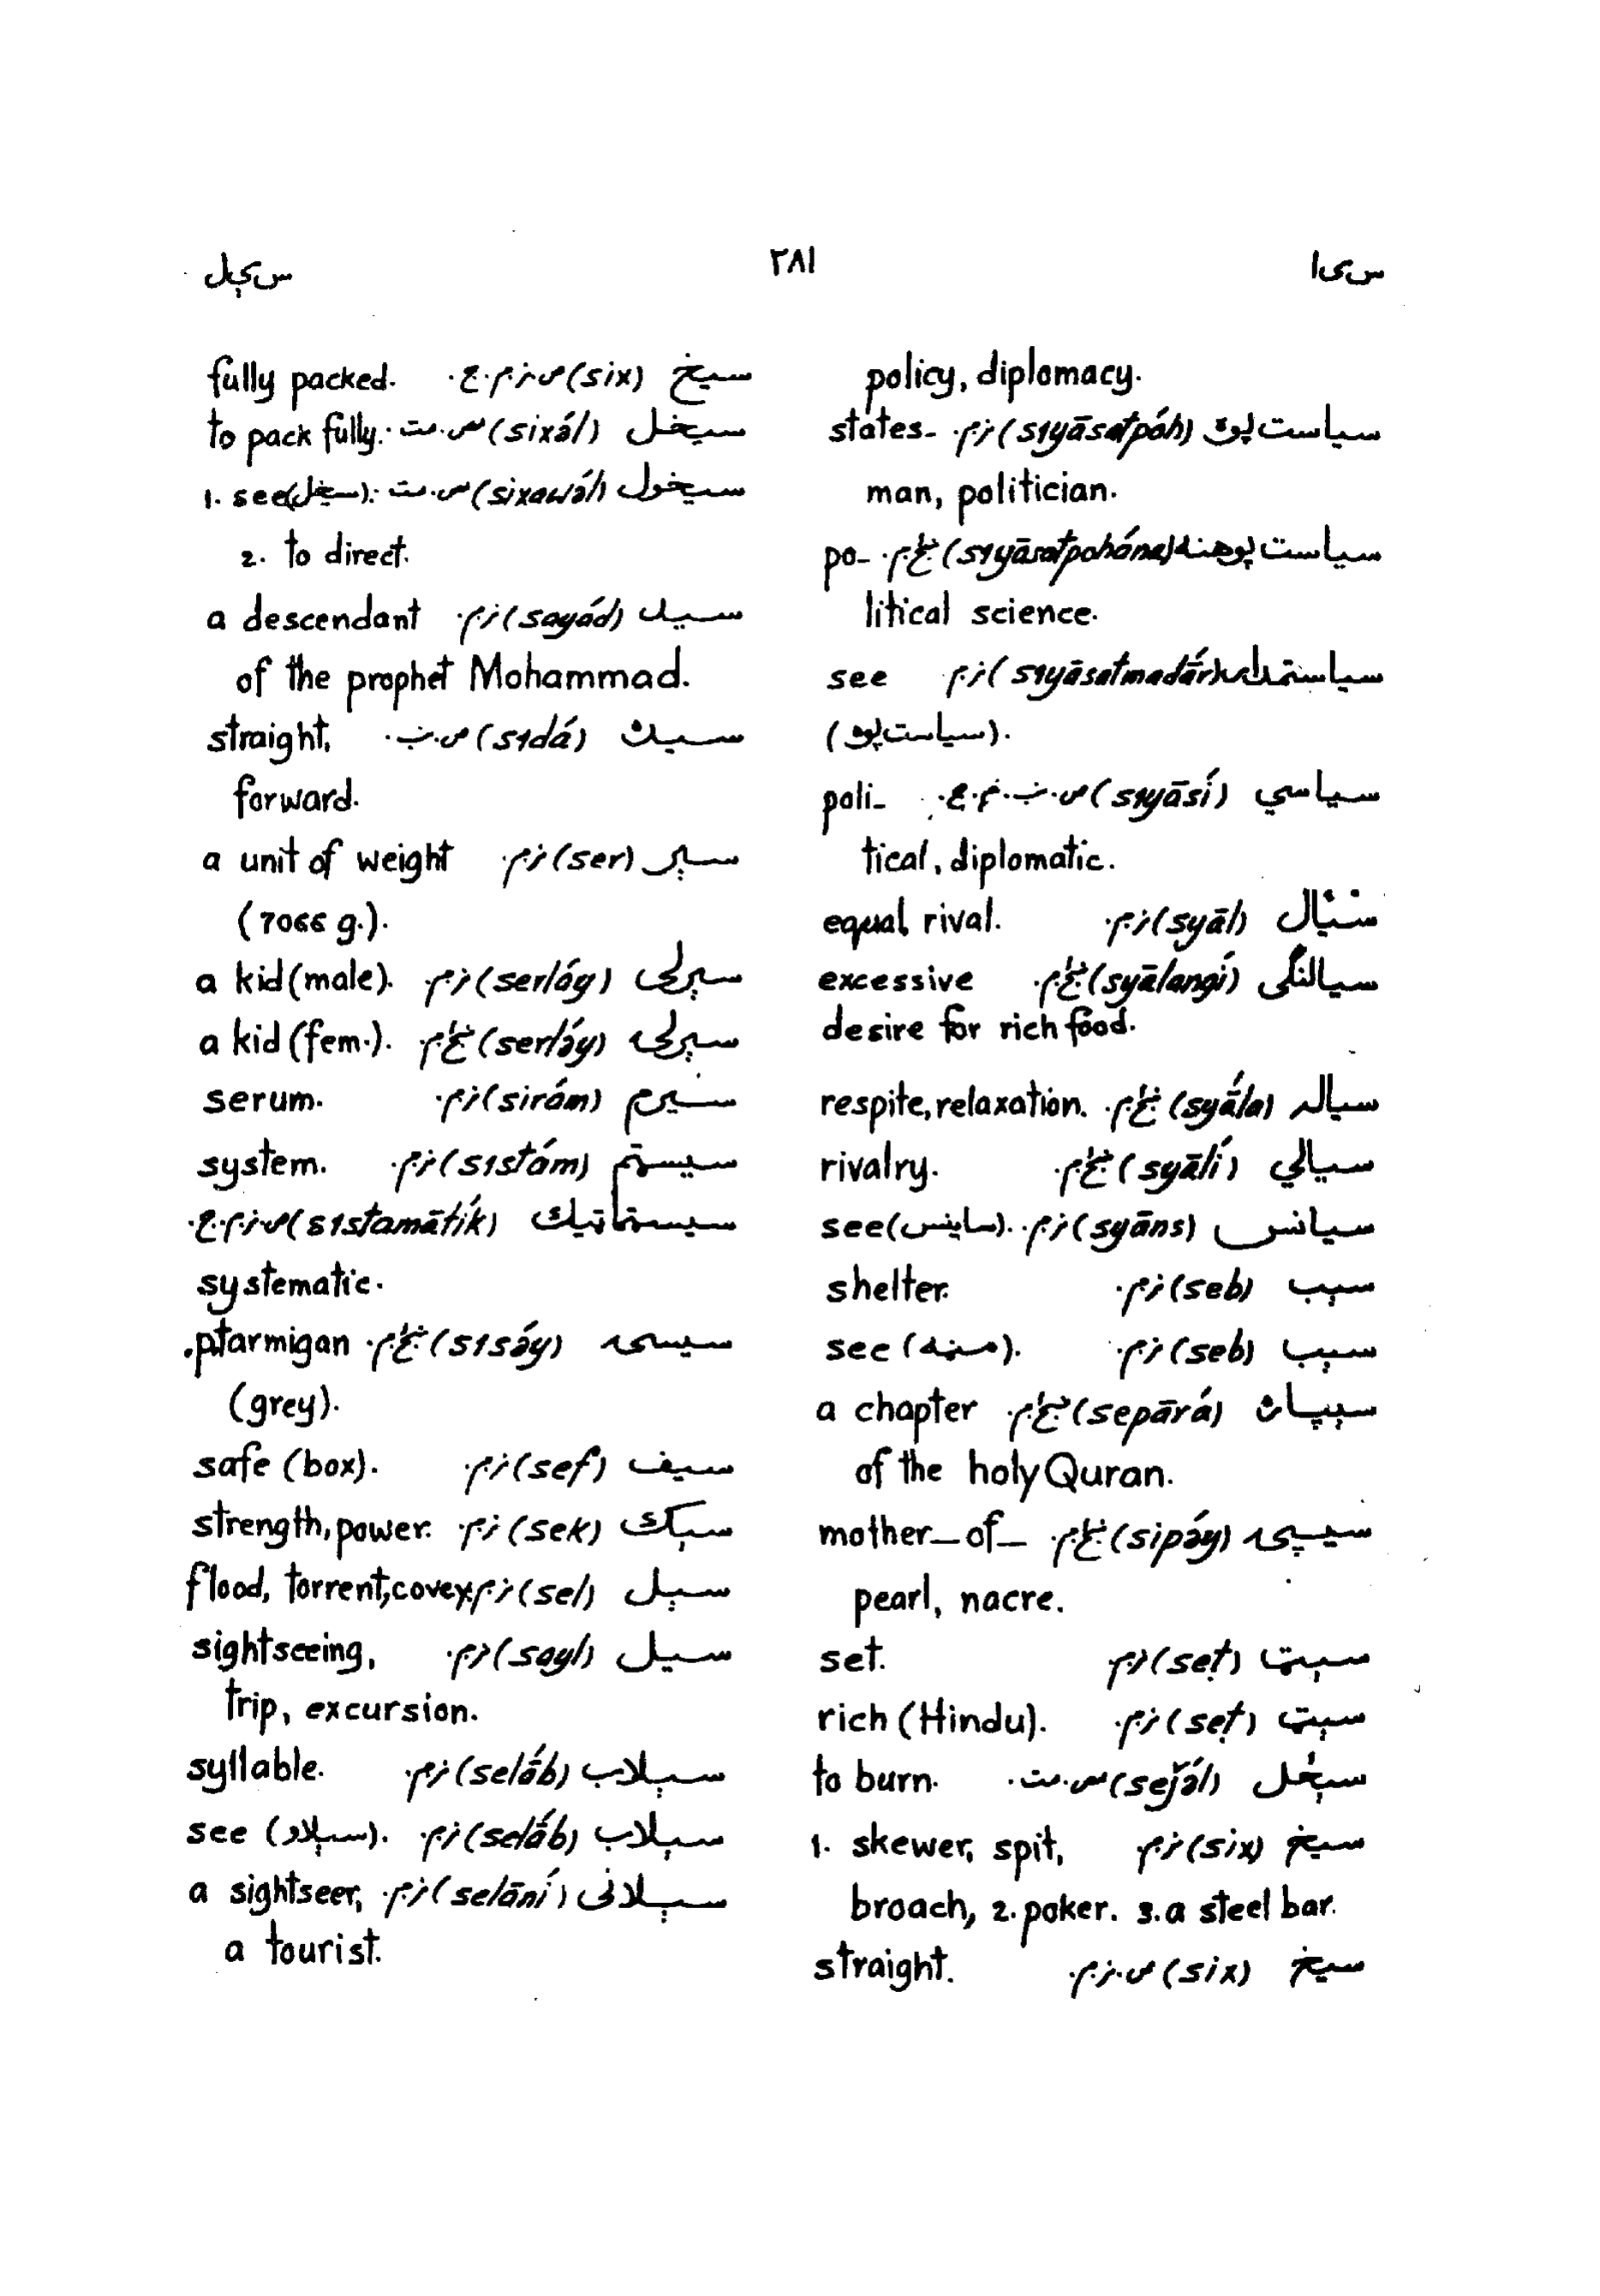 س ی ا
۲۸۱
س ی ېل
policy, diplomacy.
سیاست پوه (sıyāsatpóh) ن.م. states-
man, politician.
سیاست پوهنه (sıyāsatpohána) ښځ.م. po-
litical science.
سیاستمدار (sıyāsatmadár) ن.م. see
(سیاست پوه).
سیاسي (sıyāsí) ص.ن.ب.م.ج. poli-
tical, diplomatic.
سیال (syāl) ن.م. equal, rival.
سیالنګی (syālangí) ښځ.م. excessive
desire for rich food.
سیاله (syā́la) ښځ.م. respite, relaxation.
سیالي (syālí) ښځ.م. rivalry.
سیانس (syāns) ن.م. see (ساینس).
سېب (seb) ن.م. shelter.
سېب (seb) ن.م. see (مڼه).
سېپاره (sepārá) ښځ.م. a chapter
of the holy Quran.
سیپۍ (sipáy) ښځ.م. mother-of-
pearl, nacre.
سېټ (seṭ) ن.م. set.
سېټ (seṭ) ن.م. rich (Hindu).
سېځل (seǰə́l) س.مت. to burn.
سیخ (six) ن.م. 1. skewer, spit,
broach, 2. poker. 3. a steel bar.
سیخ (six) ص.ن.م. straight.
سیخ (six) ص.ن.م.ج. fully packed.
سیخل (sixə́l) س.مت. to pack fully.
سیخول (sixawə́l) س.مت. 1. see (سیخل).
2. to direct.
سید (sayád) ن.م. a descendant
of the prophet Mohammad.
سیده (sıdá) ص.ب. straight,
forward.
سېر (ser) ن.م. a unit of weight
(7066 g.).
سېرلی (serláy) ن.م. a kid (male).
سېرلۍ (serlə́y) ښځ.م. a kid (fem.).
سیرم (sirám) ن.م. serum.
سیستم (sıstám) ن.م. system.
سیستماتیک (sıstamātík) ص.ن.م.ج.
systematic.
سیسۍ (sısə́y) ښځ.م. ptarmigan
(grey).
سیف (sef) ن.م. safe (box).
سېک (sek) ن.م. strength, power.
سېل (sel) ن.م. flood, torrent, covey.
سیل (sayl) ن.م. sightseeing,
trip, excursion.
سېلاب (selā́b) ن.م. syllable.
سېلاب (selā́b) ن.م. see (سېلاو).
سېلانی (selāní) ن.م. a sightseer,
a tourist.